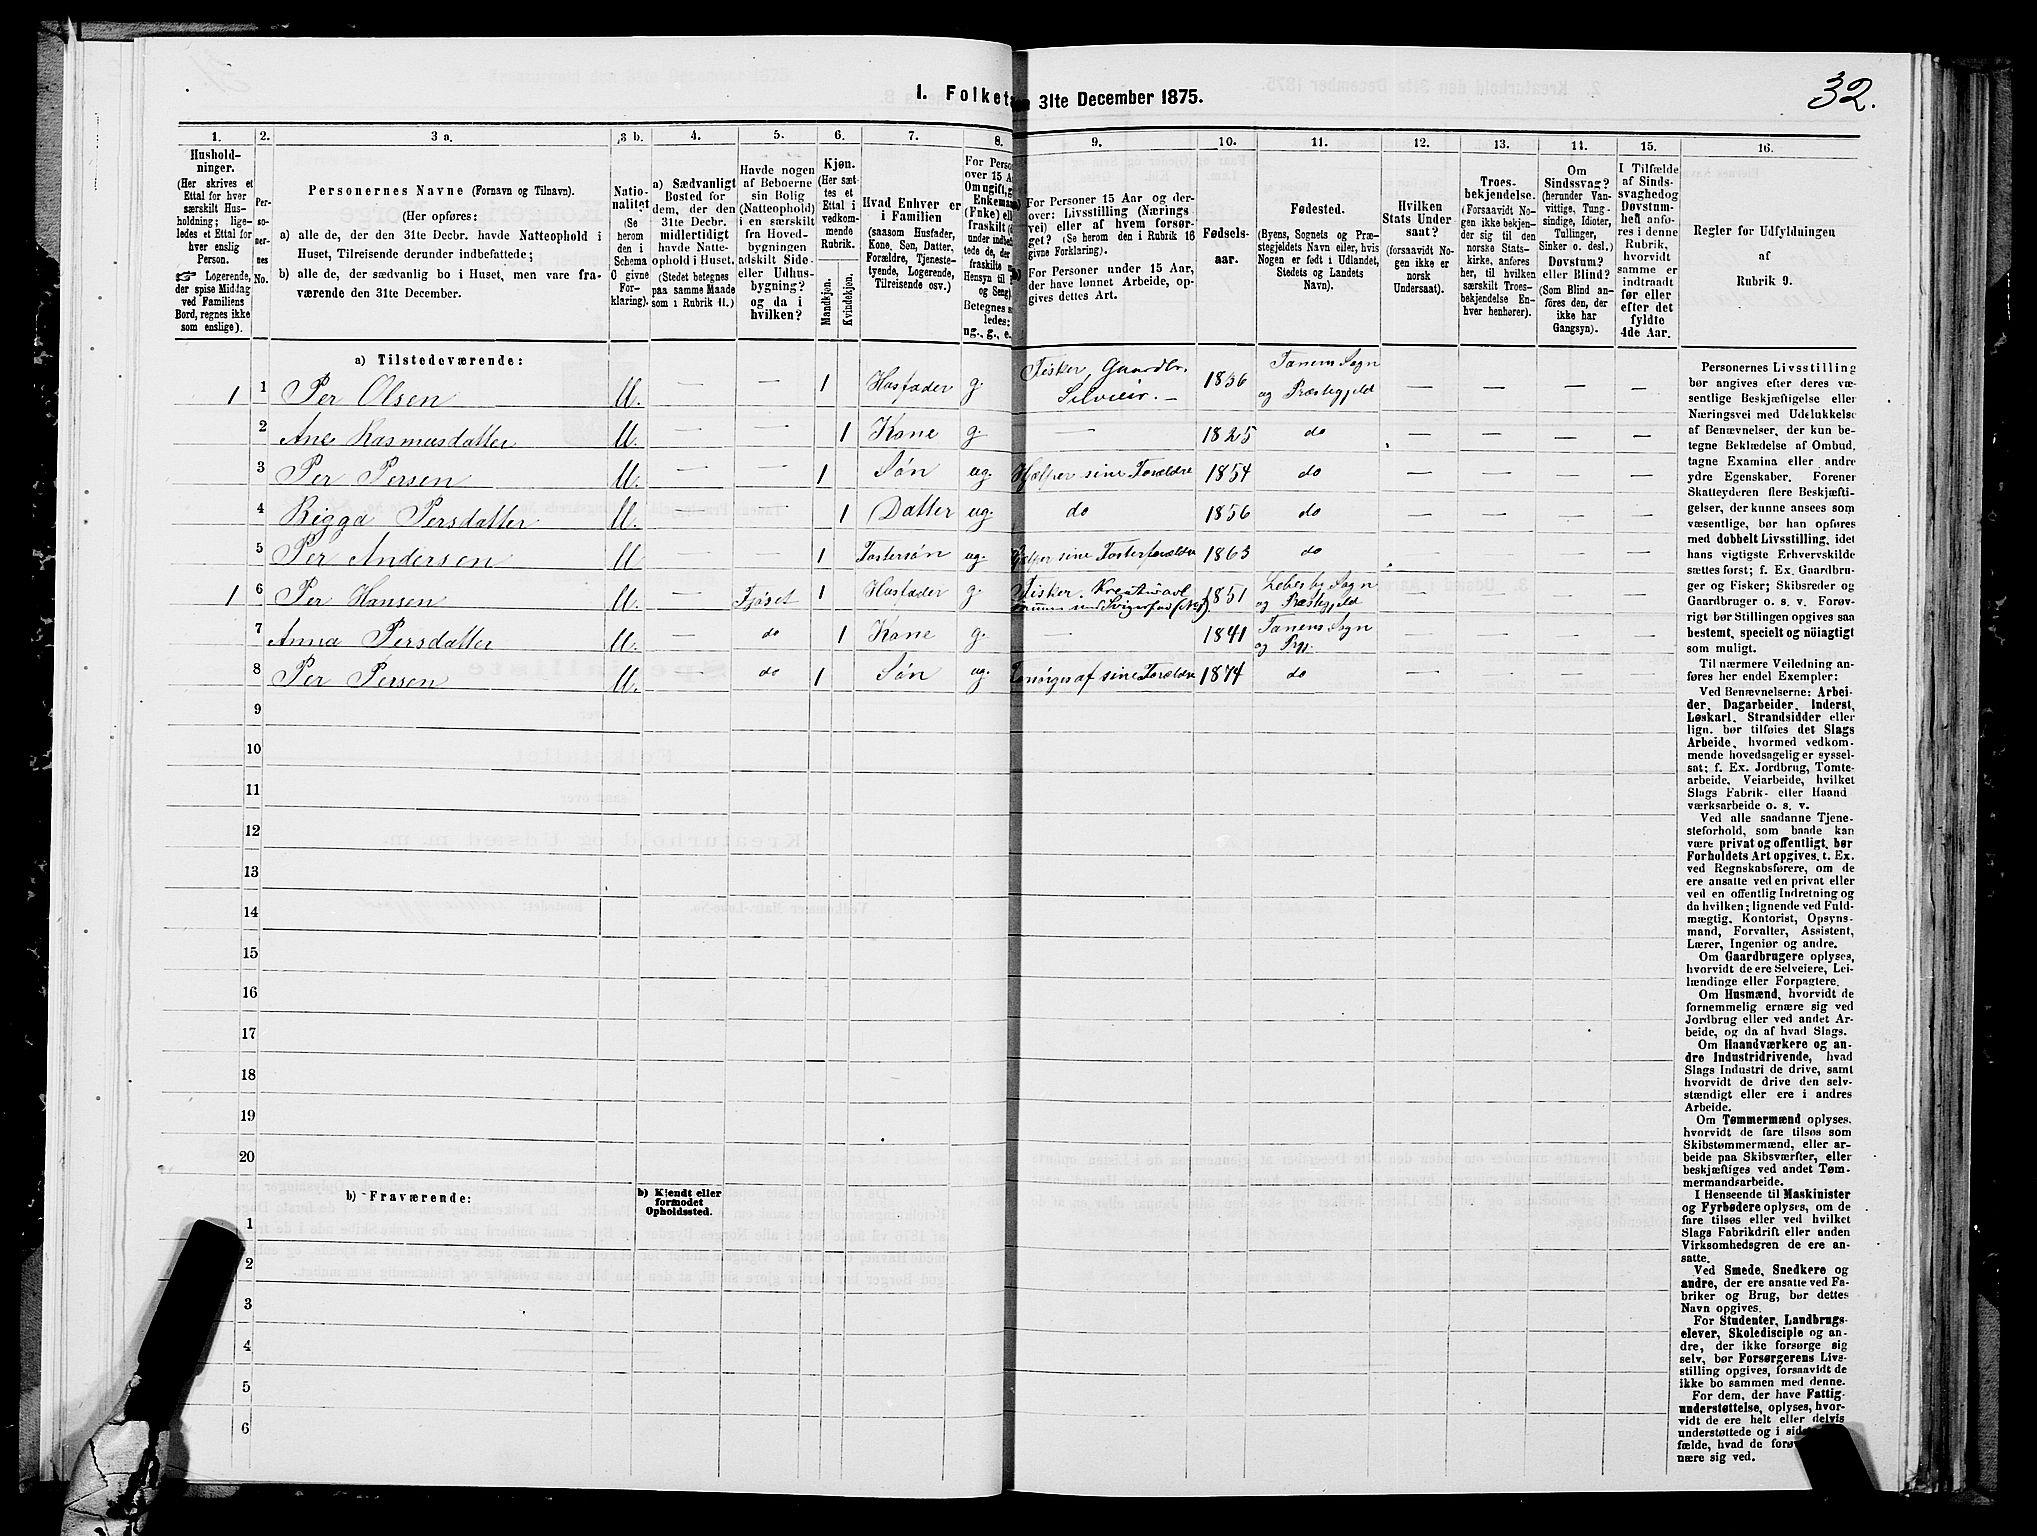 32.
I. Folketæ 31te December 1875.
1. 2. 3 a. 3 b. 4. 5. 6. 7. 8. 9. 10. 11. 12. 13. 14. 15. 16.
Hushold-
ninger.
(Her skrives et
Ettal for hver
særskilt Hus-
holdning; lige-
ledes et Ettal for
hver enslig
Person.
☞ Logerende,
der spise Middag
ved Familiens
Bord, regnes ikke
som enslige).
Per-
so-
ner-
nes
No.
Personernes Navne (Fornavn og Tilnavn).
(Her opføres:
a) alle de, der den 31te Decbr. havde Natteophold i
Huset, Tilreisende derunder indbefattede;
b) alle de, der sædvanlig bo i Huset, men vare fra-
værende den 31te December.
Natio-
nalitet?
(Se
herom
den i
Schema
O givne
For-
klaring).
a) Sædvanligt
Bosted for
dem, der den
31te Decbr.
midlertidigt
havde Natte-
ophold i Huset.
(Stedet betegnes
paa samme Maade
som i Rubrik 11.)
Havde nogen
af Beboerne
sin Bolig
(Natteophold)
i en særskilt
fra Hoved-
bygningen
adskilt Side-
eller Udhus-
bygning?
og da i
hvilken?
Kjøn.
(Her sæt-
tes et
Ettal i
vedkom-
mende
Rubrik.
Mandkjøn.
Kvindekjøn.
Hvad Enhver er
i Familien
(saasom Husfader,
Kone, Søn, Datter,
Forældre, Tjeneste-
tyende, Logerende,
Tilreisende osv.)
For Perso
over 15 A
Om ugift, g
Enkeman
(Fnke) ell
fraskilt (
under indbef
tede de, der
fraskilte
Hensyn til
og Seng)
Betegnes s
ledes:
ug., g., e.
For Personer 15 Aar og der-
over: Livsstilling (Nærings
vei) eller af hvem forsør-
get? (Se herom den i Rubrik 16
givne Forklaring).
For Personer under 15 Aar,
der have lønnet Arbeide, op-
gives dettes Art.
Fødsels-
aar.
Fødested.
(Byens, Sognets og Præ-
stegjeldets Navn eller, hvis
Nogen er født i Udlandet,
Stedets og Landets
Navn).
Hvilken
Stats Under
saat?
(forsaavidt No-
gen ikke er
norsk
Undersaat).
Troes-
bekjendelse.
(Forsaavidt No-
gen ikke bekjen-
der sig til den
norske Stats-
kirke, anføres
her, til hvilken
særskilt Troes-
bekjendelse En-
hver henhører).
Om
Sindssvag?
(herunder Van-
vittige, Tung-
sindige, Idioter,
Tullinger,
Sinker o. desl.)
Døvstum?
eller Blind?
(Som Blind an-
føres den, der
ikke har
Gangsyn).
I Tilfælde
af Sinds-
svaghed og
Døvstum-
het anfø-
res i denne
Rubrik,
hvorvidt
samme er
indtraadt
før eller
efter det
fyldte
4de Aar.
Regler for Udfyldningen
af
Rubrik 9.
a) Tilstedeværende:
1 1 Per Olsen M. — — 1 Husfader g. Fisker, Gaardbr. Selveier. — 1836 Tanens Sogn og Præstegjeld — — — —
2 Ane Rasmusdatter M. — — 1 Kone g. — 1825 do — — — —
3 Per Persen M. — — 1 Søn ug. Hjelper sine Forældre 1854 do — — — —
4 Bigga Persdatter M. — — 1 Datter ug. do 1856 do — — — —
5 Per Andersen M — — 1 Fostersøn ug. Hjelper sine Fosterforældre 1863 do — — — —
1 6 Per Hansen M. — Fjøset 1 Husfader g. Fisker. Kreaturavl 1851 Lebesby Sogn og Præstegjeld — — — —
7 Anna Persdatter M. — do 1 Kone g. — 1841 Tanens Sogn og Prgj. — — — —
8 Per Persen M. — do 1 Søn ug. Forsørges af sine Forældre 1874 do — — — —
9
10
11
12
13
14
15
16
17
18
19
20
b) Fraværende:
b) Kjendt eller
formodet
Opholdssted.
1
2
3
4
5
6
Personernes Livsstilling
bør angives efter deres væ-
sentlige Beskjæftigelse eller
Næringsvei med Udelukkelse
af Benævnelser, der kun be-
tegne Beklædelse af Ombud,
tagne Examina eller andre
ydre Egenskaber. Forener
Skatteyderen flere Beskjæfti-
gelser, der kunne ansees som
væsentlige, bør han opføres
med dobbelt Livsstilling, idet
hans vigtigste Erhvervskilde
sættes først; f. Ex. Gaardbru-
ger og Fisker; Skibsreder og
Gaardbruger o. s. v. Forøv-
rigt bør Stillingen opgives saa
bestemt, specielt og nöiagtigt
som muligt.
Til nærmere Veiledning an-
føres her endel Exempler:
Ved Benævnelserne: Arbei-
der, Dagarbeider, Inderst,
Løskarl, Strandsidder eller
lign. bør tilføies det Slags
Arbeide, hvormed vedkom-
mende hovedsagelig er syssel-
sat; f. Ex. Jordbrug, Tomte-
arbeide, Veiarbeide, hvilket
Slags Fabrik- eller Haand
værksarbeide o. s. v.
Ved alle saadanne Tjene-
steforhold, som baade kan
være privat og offentligt, bør
Forholdets Art opgives, t. Ex.
ved Regnskabsførere, om de
ere ansatte ved en privat eller
ved en offentlig Indretning og
da hvilken; lignende ved Fuld-
mægtig, Kontorist, Opsyns-
mand, Forvalter, Assistent,
Lærer, Ingeniør og andre.
Om Gaardbrugere oplyses,
hvorvidt de ere Selveiere, Lei-
lændinge eller Forpagtere.
Om Husmænd, hvorvidt de
fornemmelig ernære sig ved
Jordbrug eller ved andet Ar-
beide, og da af hvad Slags.
Om Haandværkere og an-
dre Industridrivende, hvad
Slags Industri de drive, samt
hvorvidt de drive den selv-
stændigt eller ere i andres
Arbeide.
Om Tømmermænd oplyses,
hvorvidt de fare tilsøs som
Skibstømmermænd, eller ar-
beide paa Skibsværfter, eller
beskjæftiges ved andet Tøm-
mermandsarbeide.
I Henseende til Maskinister
og Fyrbødere oplyses, om de
fare tilsøs eller ved hvilket
Slags Fabrikdrift eller anden
Virksomhedsgren de ere an-
satte.
Ved Smede, Snedkere og
andre, der ere ansatte ved Fa-
briker og Brug, bør dettes
Navn opgives.
For Studenter, Landbrugs-
elever, Skoledisciple og an-
dre, der ikke forsørge sig
selv, bør Forsørgerens Livs-
stilling opgives, forsaavidt de
ikke bo sammen med denne.
For dem, der have Fattig-
understøttelse, oplyses, hvor-
vidt de ere helt eller delvis
understøttede og i sid
fælde, hvad de forøv
nære sig ved.